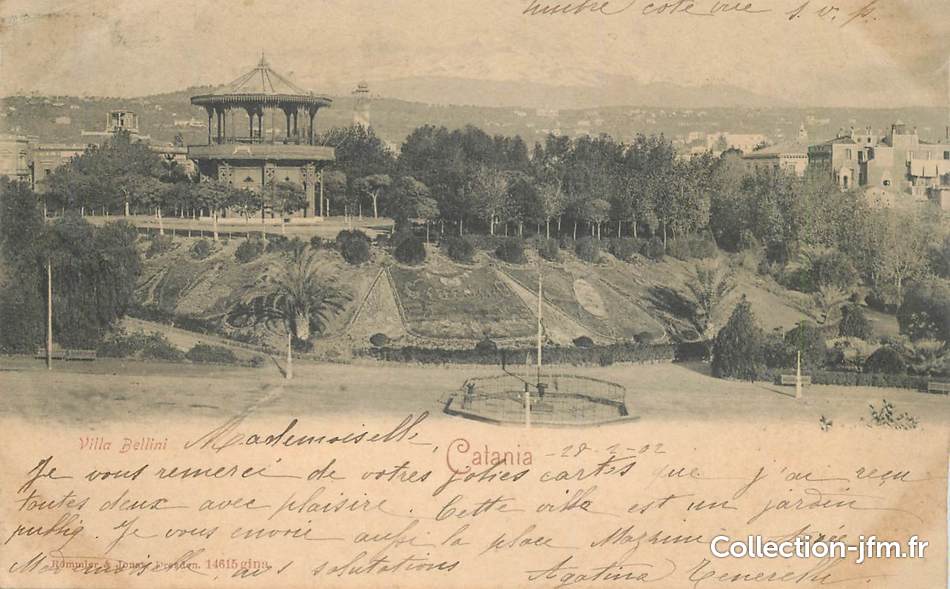 Timbre côté vue s. v. p.
Villa Bellini
Mademoiselle,
Catania
Je vous remercí de votres jolies cartes que j'ai reçu
toutes deux avec plaisire. Cette villa est un jardin
public. Je vous envoie aussi la place
salutations
Agatina Tenerelli.
Römmler & Jonas, Dresden. 14615
Collection-jfm.fr